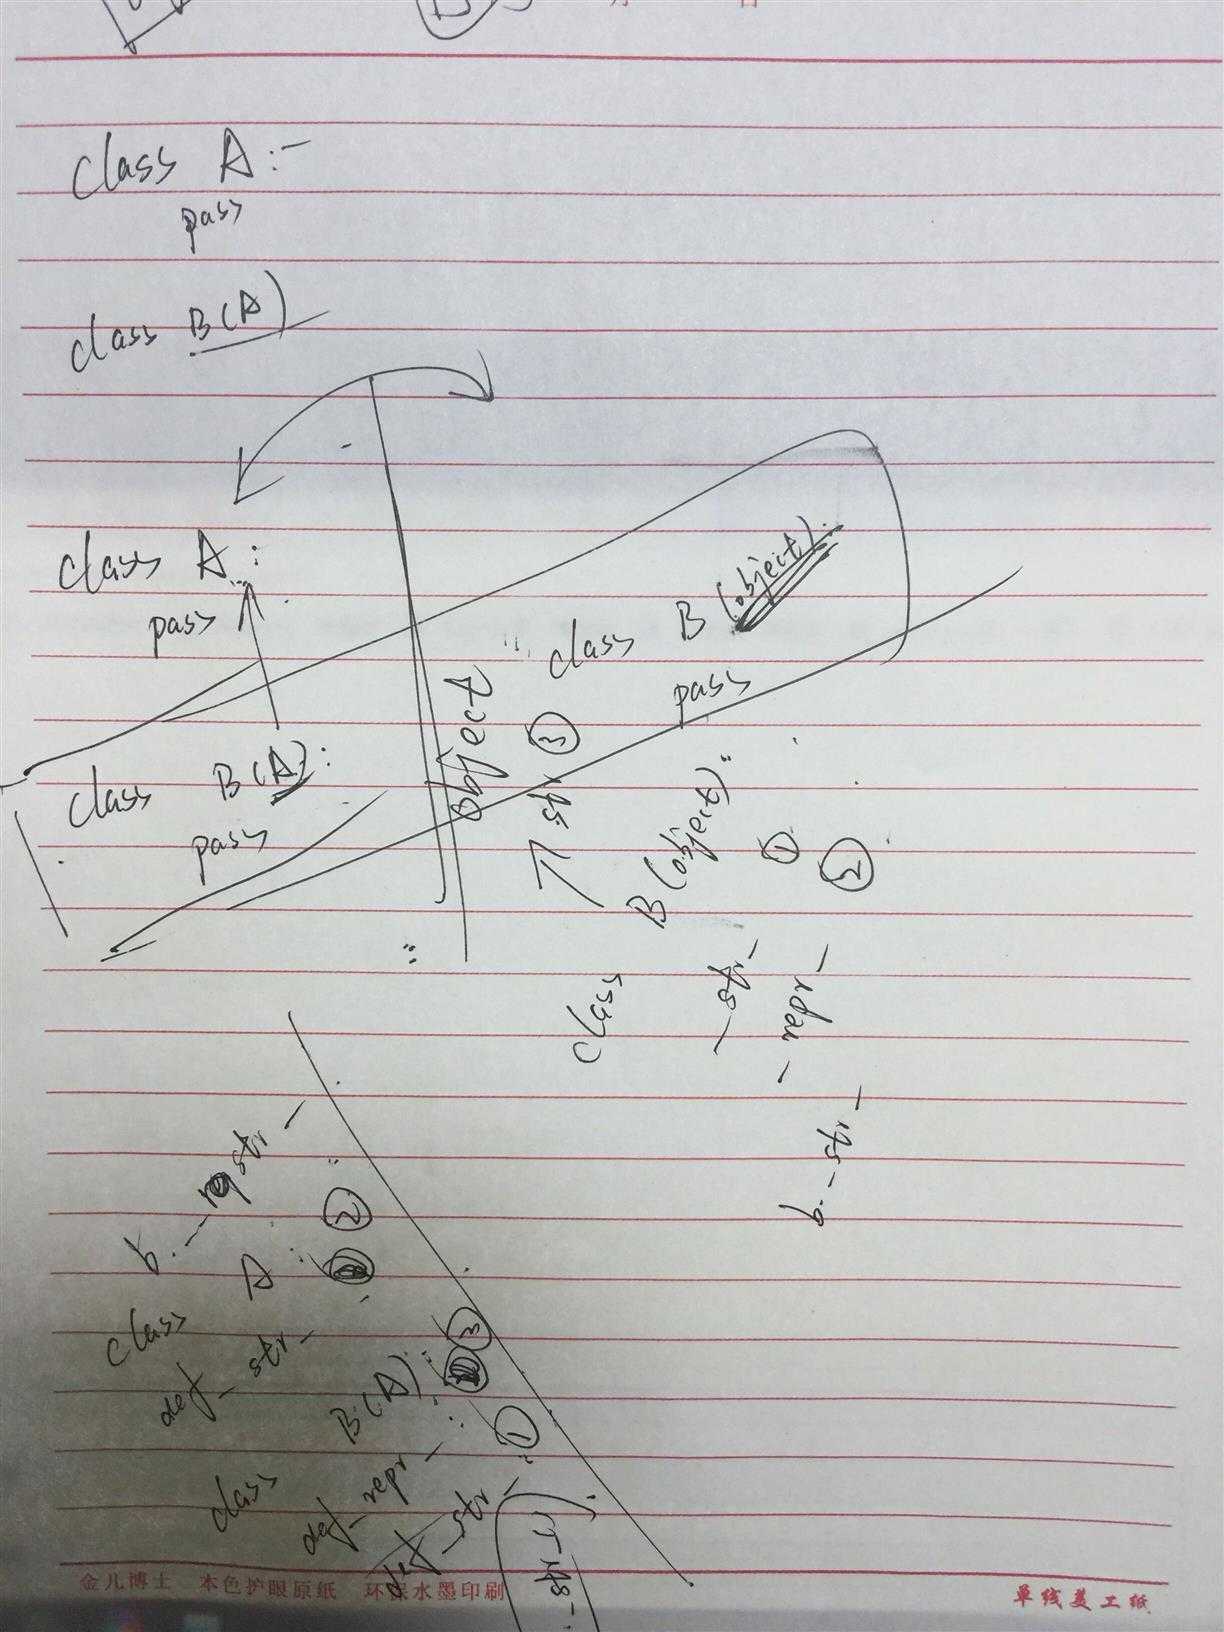 class A:-
pass
class B(A)
class A:
pass
class B(A):
pass
class B(object):
pass
object
③
str
class B(object):
① ③
_str_
_repr_
_str_
b.__str_
②
class A:
def_str_
③
class B(A):
①
def_repr_:
def_str_:
金儿博士 本色护眼原纸 环保水墨印刷
单线美工纸